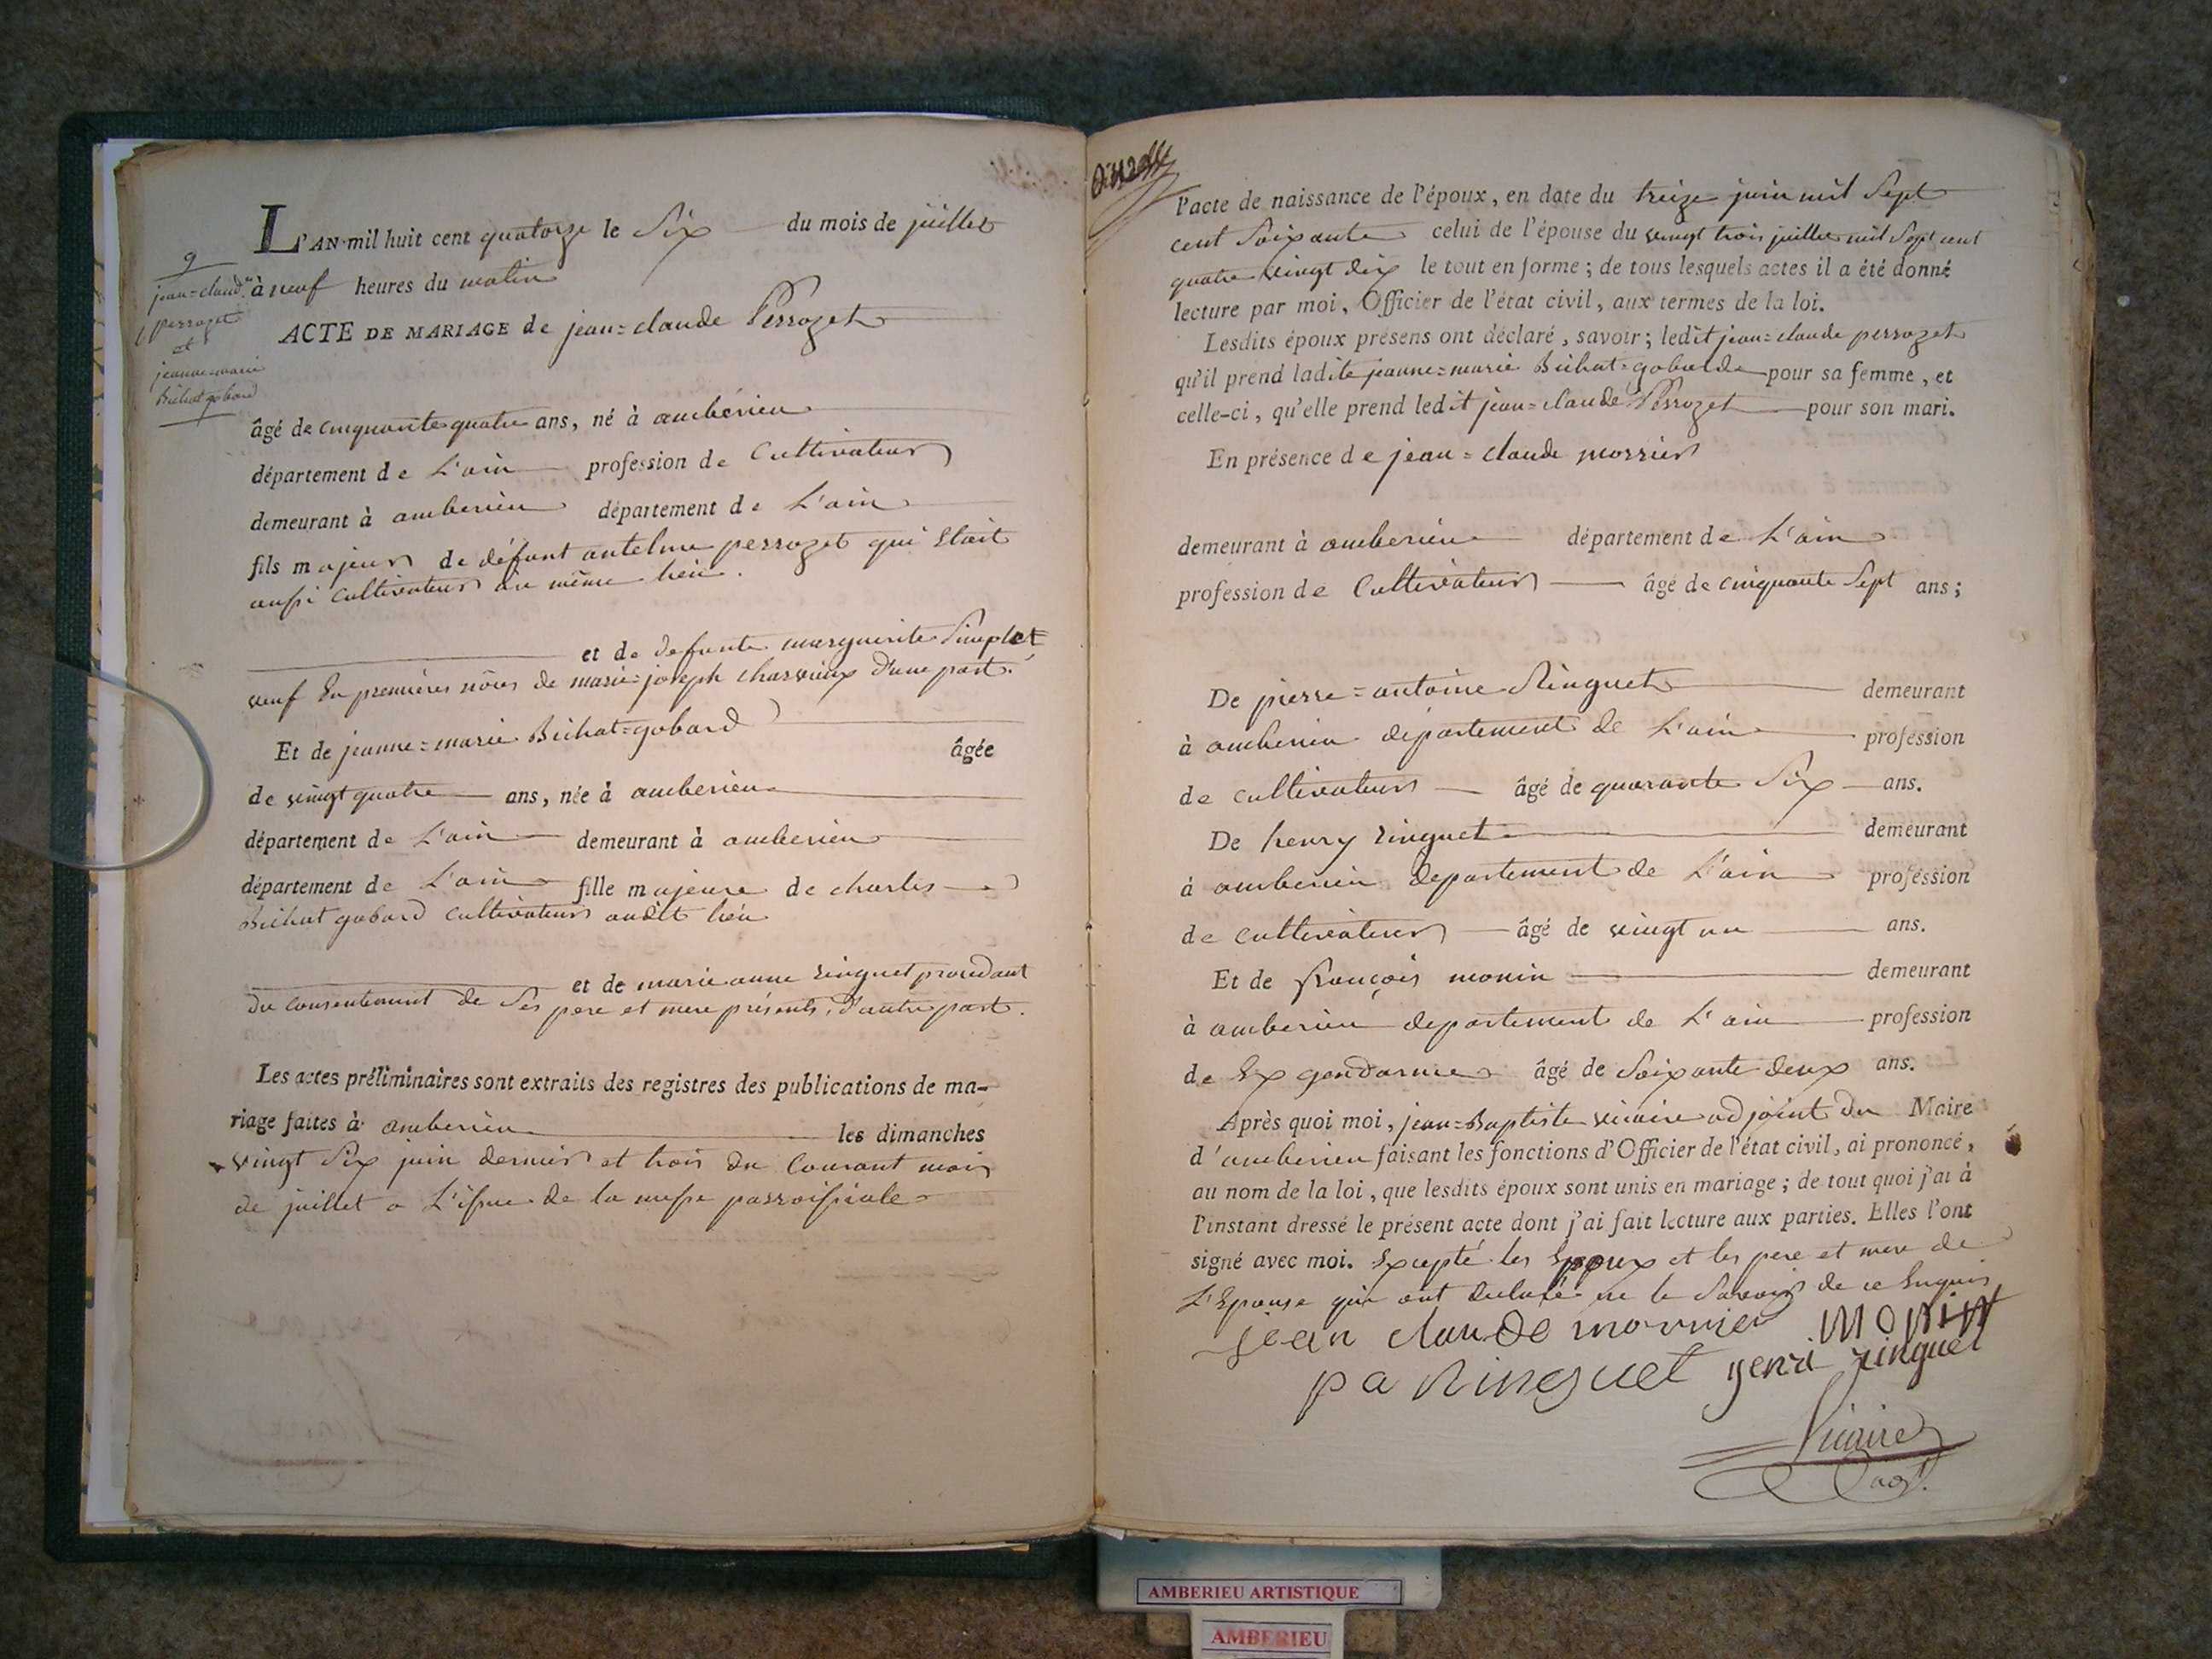 9
jean=claude
perrozet
et
jeanne=marie
Bichat gobard
L'AN mil huit cent quatorze le Six du mois de juillet
à neuf heures du matin
ACTE DE MARIAGE de jean=claude Perrozet
âgé de cinquante quatre ans, né à ambérieu
département de L'ain profession de Cultivateur
demeurant à amberieu département de L'ain
fils majeur de défunt antelme perrozet qui Etait
aussi cultivateur au même lieu.
et de defunte marguerite Simplet
veuf En premières nôces de marie=joseph charvieux d'une part.
Et de jeanne=marie Bichat=gobard âgée
de vingt quatre ans, née à amberieu
département de L'ain demeurant à amberieu
département de L'ain fille majeure de charles
Bichat gobard cultivateur audit lieu
et de marie anne ringuet procédant
du consentement de Ses pere et mere présents, d'autre part.
Les actes préliminaires sont extraits des registres des publications de ma-
riage faites à amberieu les dimanches
vingt Six juin dernier et trois du Courant mois
de juillet a L'issue de la messe parroissiale
l'acte de naissance de l'époux, en date du treize juin mil Sept
cent Soixante celui de l'épouse du vingt trois juillet mil Sept cent
quatre vingt dix le tout en forme; de tous lesquels actes il a été donné
lecture par moi, Officier de l'état civil, aux termes de la loi.
Lesdits époux présens ont déclaré, savoir; ledit jean=claude perrozet
qu'il prend ladite jeanne=marie Bichat=gobard pour sa femme, et
celle-ci, qu'elle prend ledit jean=claude Perrozet pour son mari.
En présence de jean=claude morrier
demeurant à amberieu département de L'ain
profession de Cultivateur âgé de cinquante Sept ans;
De pierre=antoine Ringuet demeurant
à amberieu departement de L'ain profession
de cultivateur âgé de quarante Six ans.
De henry ringuet demeurant
à amberieu departement de L'ain profession
de cultivateur âgé de vingt un ans.
Et de françois monin demeurant
à amberieu departement de L'ain profession
de Ex gendarme âgé de Soixante deux ans.
Après quoi moi, jean=Baptiste vicaire adjoint du Maire
d'amberieu faisant les fonctions d'Officier de l'état civil, ai prononcé,
au nom de la loi, que lesdits époux sont unis en mariage; de tout quoi j'ai à
l'instant dressé le présent acte dont j'ai fait lecture aux parties. Elles l'ont
signé avec moi. Excepté les Epoux et les pere et mere de
L'Epouse qui ont declaré ne le Savoir de ce Enquis
jean claude morrier monin
pa Ringuet henri ringuet
Vicaire
adj.
AMBERIEU ARTISTIQUE
AMBERIEU